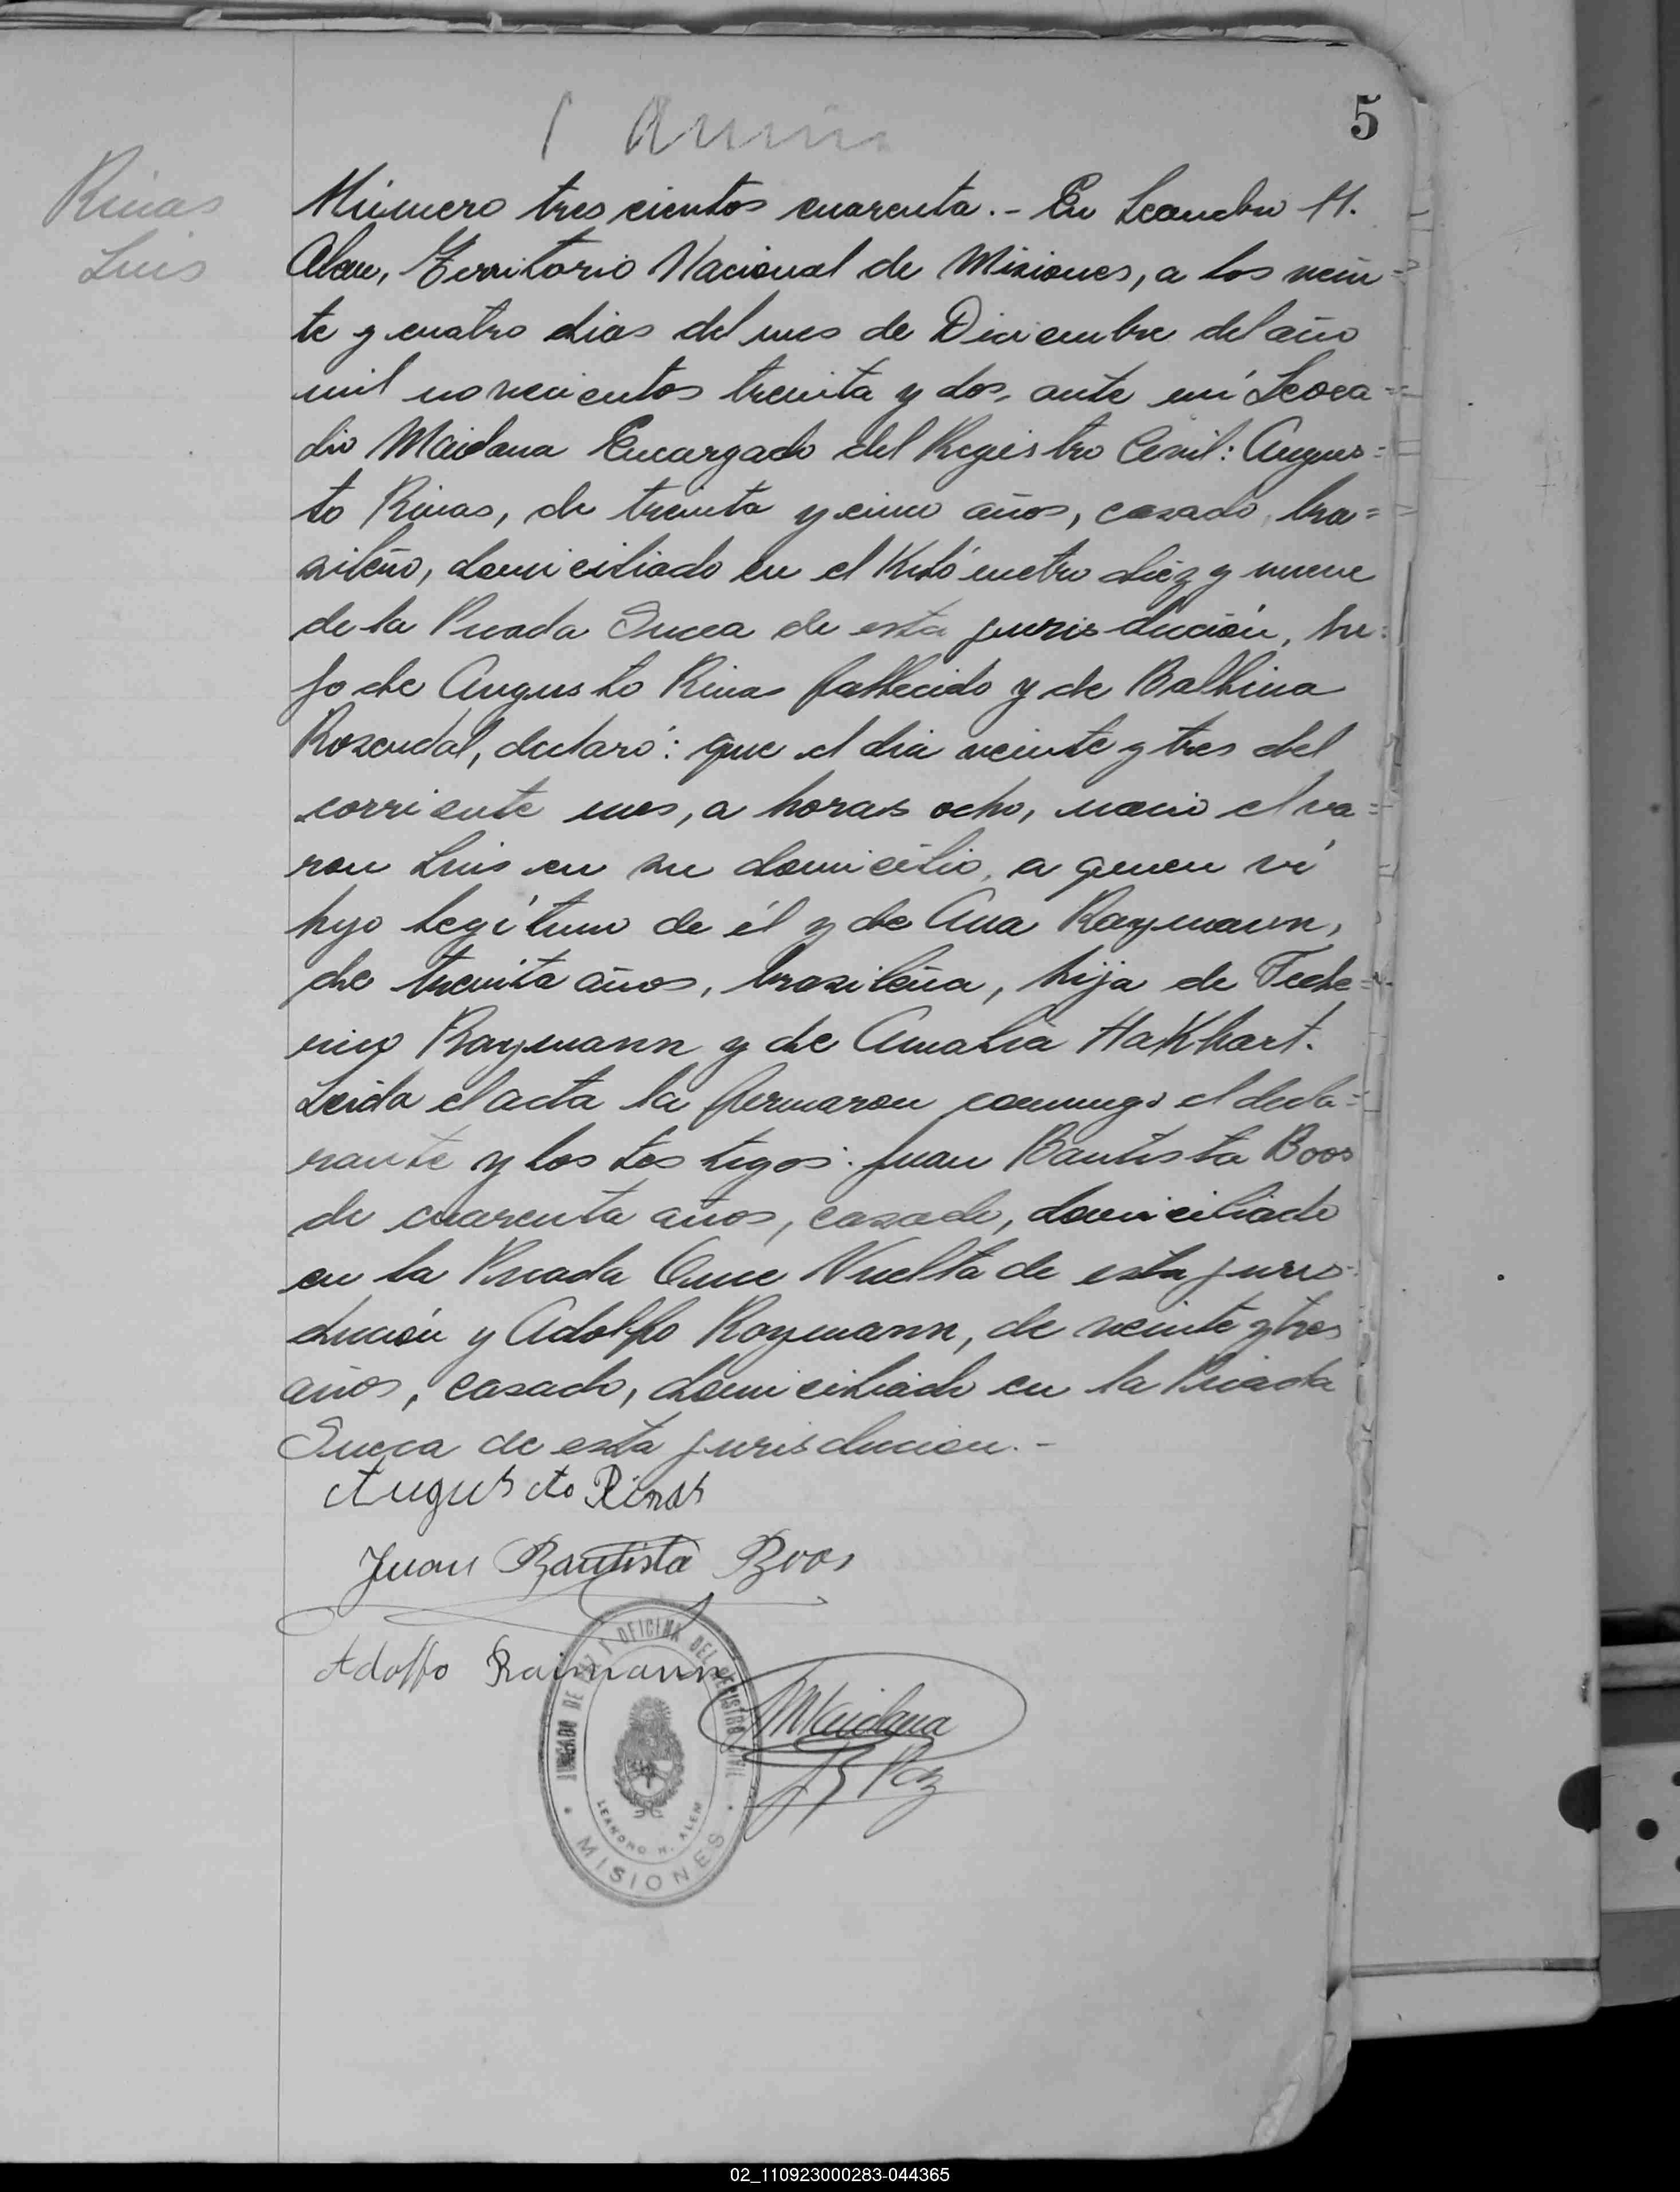 5
Rinas
Luis
Número trescientos cuarenta.- En Leandro N.
Alem, Territorio Nacional de Misiones, a los vein=
te y cuatro dias del mes de Diciembre del año
mil novecientos treinta y dos, ante mí Leoca=
dio Maidana Encargado del Registro Civil: Augus=
to Rinas, de treinta y cinco años, casado, bra=
sileño, domiciliado en el Kilómetro diez y nueve
de la Picada Sueca de esta jurisdicción, hi=
jo de Augusto Rinas fallecido y de Balbina
Rosendal, declaró: que el dia veinte y tres del
corriente mes, a horas ocho, nació el va=
ron Luis en su domicilio, a quien ví
hijo legítimo de él y de Ana Raymann,
de treinta años, brasileña, hija de Fede=
rico Raymann y de Amalia Hakhart.
Leida el acta la firmaron conmigo el decla=
rante y los testigos: Juan Bautista Boos
de cuarenta años, casado, domiciliado
en la Picada Once Vuelta de esta juris=
dicción y Adolfo Raymann, de veinte y tres
años, casado, domiciliado en la Picada
Sueca de esta jurisdiccion.-
Augusto Rinas
Juan Bautista Boos
Adolfo Raimann
Maidana
J. Paz
JUZGADO DE PAZ Y OFICINA DEL REGISTRO CIVIL
LEANDRO N. ALEM
MISIONES
02_110923000283-044365